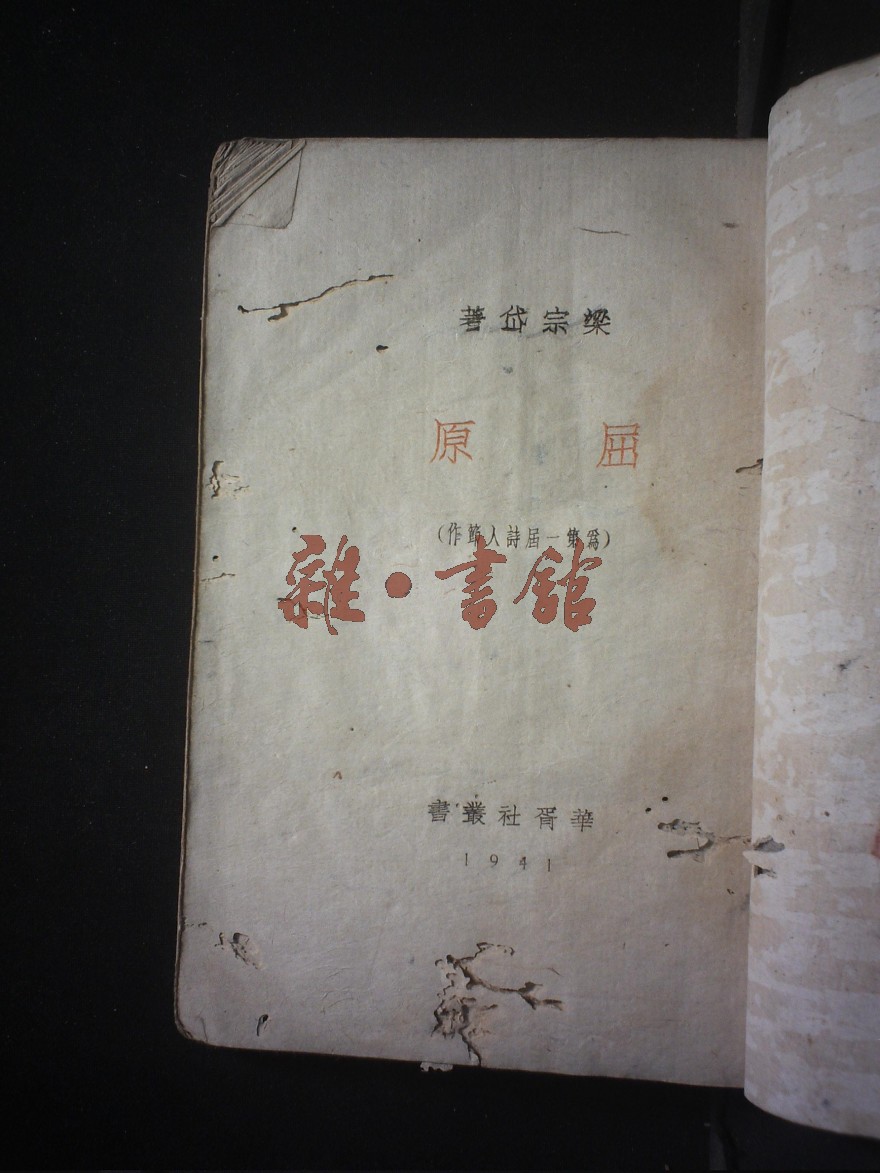 梁宗岱著
屈原
(爲第一屆詩人節作)
雜·書館
華胥社叢書
1941